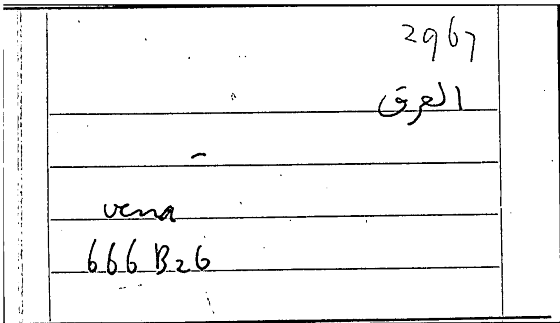 2967
العرق
-
vena
666 B26